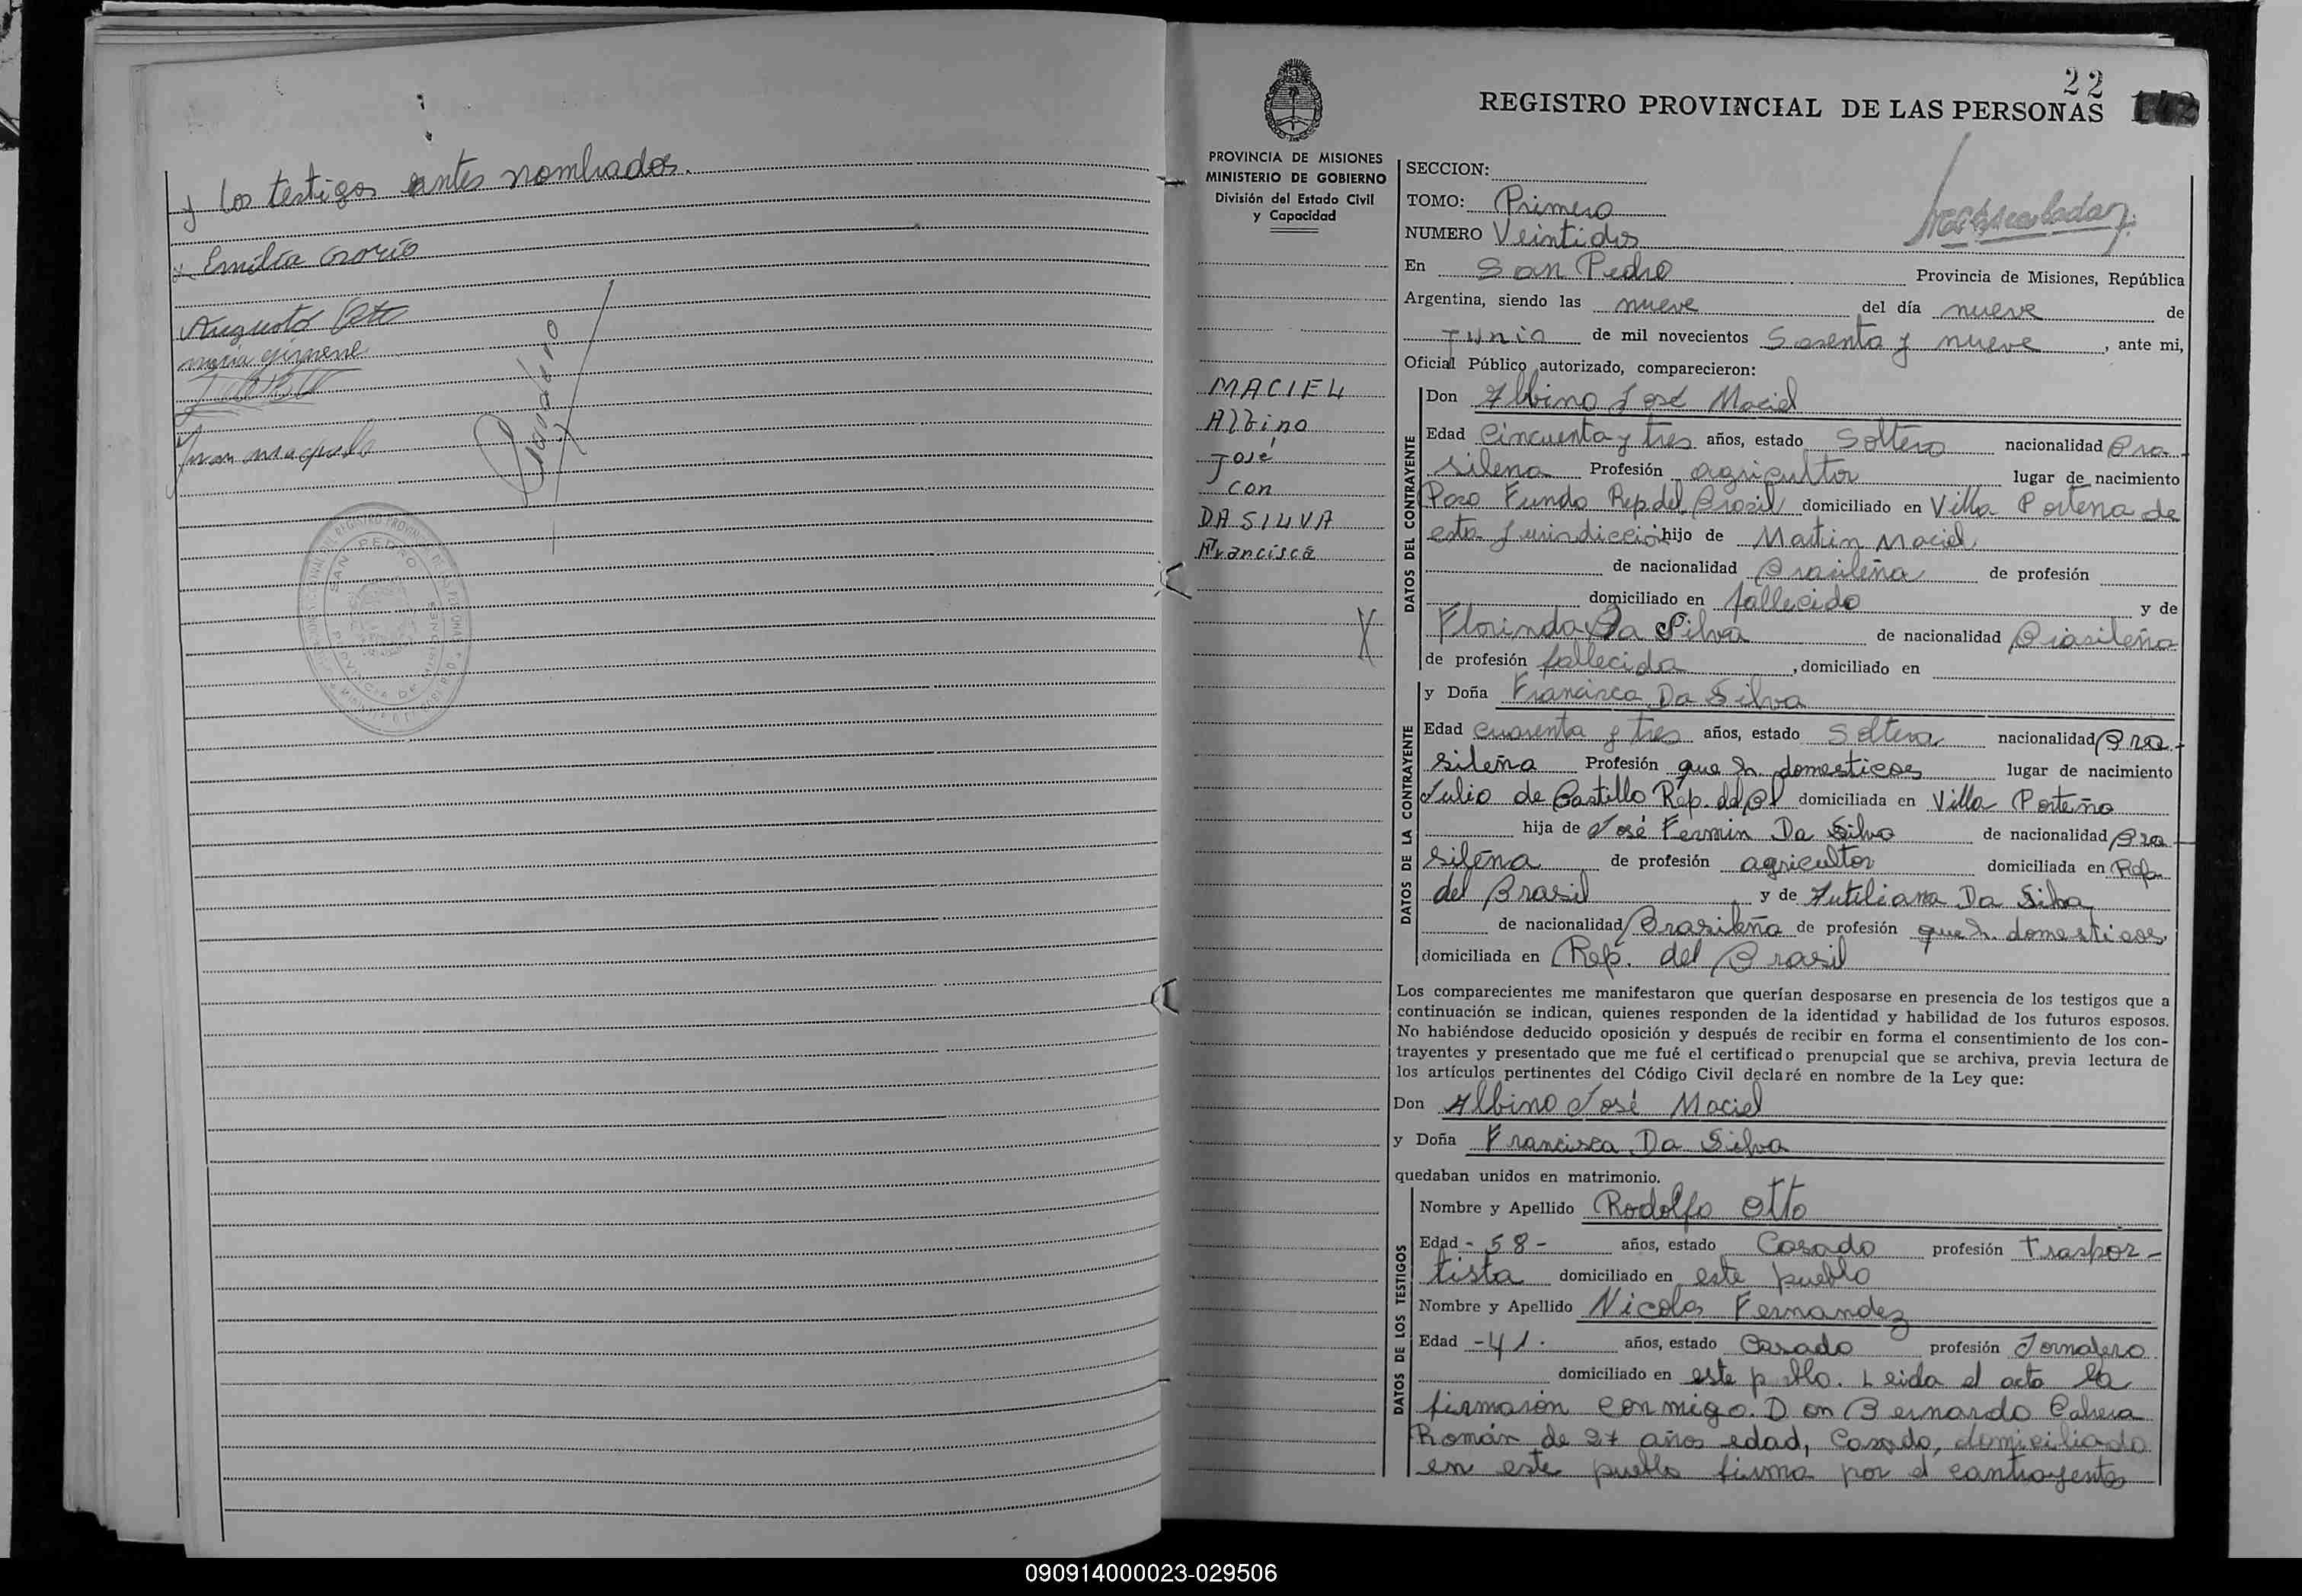 y los testigos antes nombrados.
Emilia osorio
Augusto Otto
maria gimene
Juan
SAN PEDRO
22
REGISTRO PROVINCIAL DE LAS PERSONAS
142
PROVINCIA DE MISIONES
MINISTERIO DE GOBIERNO
División del Estado Civil
y Capacidad
MACIEL
Albino
José
con
DA SILVA
Francisca
SECCION:
TOMO: Primero
NUMERO Veintidos
En San Pedro Provincia de Misiones, República
Argentina, siendo las nueve del día nueve de
Junio de mil novecientos Sesenta y nueve, ante mi,
Oficial Público autorizado, comparecieron:
DATOS DEL CONTRAYENTE
Don Albino José Maciel
Edad Cincuenta y tres años, estado Soltero nacionalidad Bra-
sileña Profesión agricultor lugar de nacimiento
Paso Fundo Rep. del Brasil domiciliado en Villa Porteña de
esta Jurisdicció hijo de Martin Maciel
de nacionalidad Brasileña de profesión
domiciliado en fallecido y de
Florinda Da Silva de nacionalidad Brasileña
de profesión fallecida, domiciliado en
DATOS DE LA CONTRAYENTE
y Doña Francisca Da Silva
Edad Cuarenta y tres años, estado Soltera nacionalidad Bra-
sileña Profesión que h. domesticos lugar de nacimiento
Julio de Castillo Rep. del Bl domiciliada en Villa Porteña
hija de José Fermin Da Silva de nacionalidad Bra-
sileña de profesión agricultor domiciliada en Rep.
del Brasil y de Autiliana Da Silva
de nacionalidad Brasileña de profesión que h. domesticos,
domiciliada en Rep. del Brasil
Los comparecientes me manifestaron que querían desposarse en presencia de los testigos que a
continuación se indican, quienes responden de la identidad y habilidad de los futuros esposos.
No habiéndose deducido oposición y después de recibir en forma el consentimiento de los con-
trayentes y presentado que me fué el certificado prenupcial que se archiva, previa lectura de
los artículos pertinentes del Código Civil declaré en nombre de la Ley que:
Don Albino José Maciel
y Doña Francisca Da Silva
quedaban unidos en matrimonio.
DATOS DE LOS TESTIGOS
Nombre y Apellido Rodolfo Otto
Edad - 58 - años, estado Casado profesión Traspor-
tista domiciliado en este pueblo
Nombre y Apellido Nicolas Fernandez
Edad - 41 - años, estado Casado profesión Jornalero
domiciliado en este pueblo. Leida el acta la
firmaron conmigo. Don Bernardo Cabrera
Román de 27 años edad, Casado, domiciliado
en este pueblo firma por el contrayente
090914000023-029506